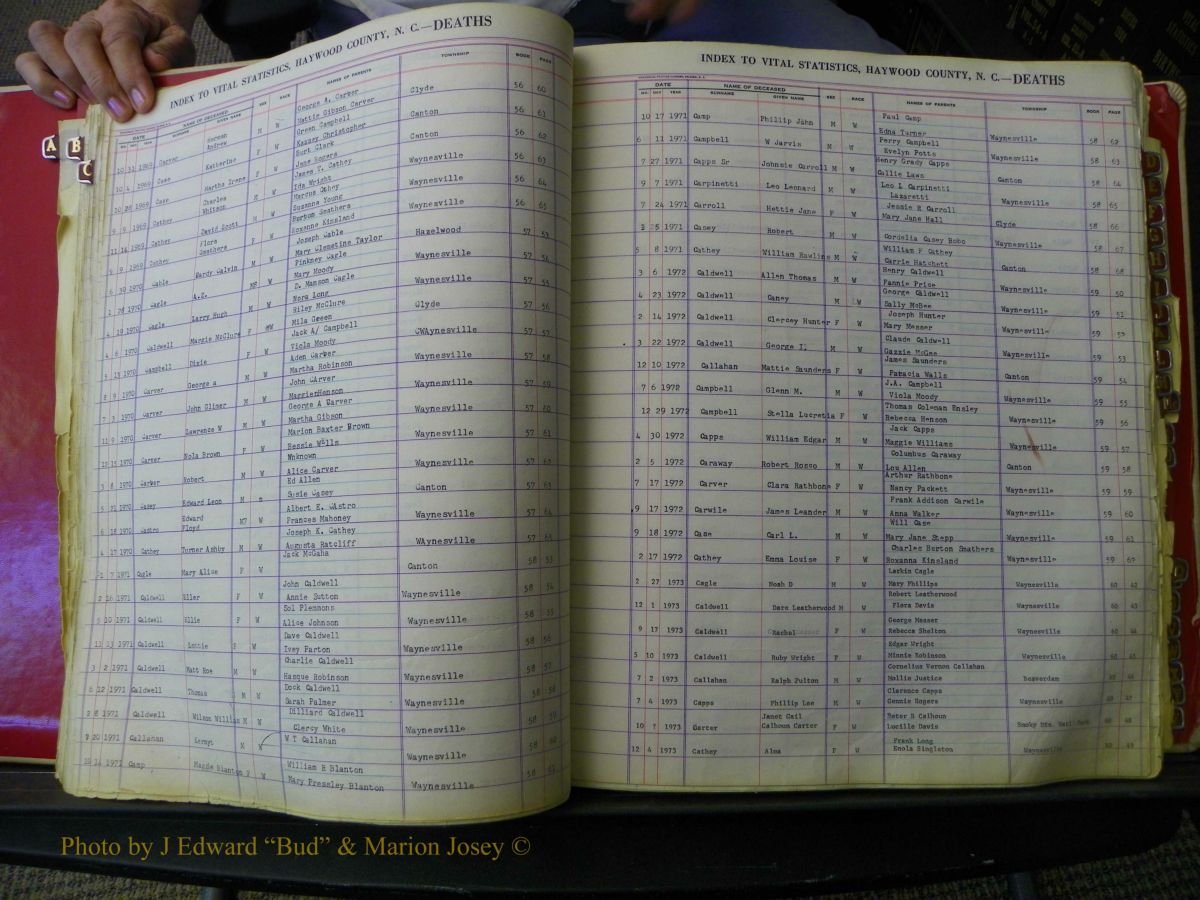 INDEX TO VITAL STATISTICS, HAYWOOD COUNTY, N. C.—DEATHS
DATE NAME OF DECEASED SEX RACE NAMES OF PARENTS TOWNSHIP BOOK PAGE
SURNAME GIVEN NAME
George A. Carver
10 31 1969 Carver Andrew M W Hattie Gibson Carver Clyde 56 60
Green Campbell
1969 Case Katherine F W Kasney Christopher Canton 56 61
Burt Clark
1969 Case Martha Irene F W Jane Rogers Canton 56 62
James T. Cathey
Cathey Charles Ida Wright Waynesville 56 63
Marcus Cthey
1969 Cathey David Scott M W Suzanne Young Waynesville 56 64
Burton Smathers
1969 Cathey Flora Smathers F W Roxanne Kinsland Waynesville 56 65
Joseph Cable
1970 Cable Hardy Calvin M W Mary Clemetine Taylor Hazelwood 57 53
Pinkney Cagle
1970 Cagle A.Z. W Mary Moody Waynesville 57 54
D. Manson Cagle
1970 Cagle Larry Hugh M W Nora Long Waynesville 57 55
Riley McClure
1970 Caldwell Margie McClure F W Mila Green Clyde 57 56
Jack A/ Campbell
1970 Campbell Dixie F W Viola Moody CWAynesville 57 57
Aden Carver
1970 Carver George a M W Martha Robinson Waynesville 57 58
John CArver
1970 Carver John Climer M W MaggieHenson Waynesville 57 59
George A Carver
1970 Carver Lawrence W M W Martha Gibson Waynesville 57 60
Marion Baxter Brown
1970 Carver Nola Brown F W Bessie Wells Waynesville 57 61
Unknown
1970 Carver Robert M W Alice Carver Waynesville 57 62
Ed Allen
1970 Casey Edward Leon M Susie Casey Canton 57 63
Albert E. CAstro
1970 Castro Edward Floyd W Frances Mahoney Waynesville 57 64
Joseph K. Cathey
17 1970 Cathey Turner Ashby M W Augusta Ratcliff WAynesville 57 65
Jack McGaha
1971 Cagle Mary Alice F W Canton 58 53
John Caldwell
1971 Caldwell Eller F W Annie Sutton Waynesville 58 54
Sol Plemmons
10 1971 Caldwell Ellie F W Alice Johnson Waynesville 58 55
Dave Caldwell
1971 Caldwell Lottie F W Ivey Parton Waynesville 58 56
Charlie Caldwell
3 2 1971 Caldwell Matt Roe M W Hasque Robinson Waynesville 58 57
Dock Caldwell
6 12 1971 Caldwell Thomas M W Sarah Palmer Waynesville 58 58
Dilliard Caldwell
1971 Caldwell Wilson William M W Clercy White Waynesville 58 59
W T Callahan
20 1971 Callahan Kermyt M W Waynesville 58 60
William R Blanton
1971 Camp Maggie Blanton F W Mary Pressley Blanton Waynesville 58 61
INDEX TO VITAL STATISTICS, HAYWOOD COUNTY, N. C.—DEATHS
DATE NAME OF DECEASED SEX RACE NAMES OF PARENTS TOWNSHIP BOOK PAGE
MO. DAY YEAR SURNAME GIVEN NAME
Paul Camp
10 17 1971 Camp Phillip Jahn M W Edna Turner Waynesville 58 62
Perry Campbell
6 11 1971 Campbell W Jarvis M W Evelyn Potts Waynesville 58 63
Henry Grady Capps
7 27 1971 Capps Sr Johnsie Carroll M W Callie Laws Canton 58 64
Leo L Carpinetti
9 7 1971 Carpinetti Leo Leonard M W Lazaretti Waynesville 58 65
Jessie R Carroll
7 24 1971 Carroll Hettie Jane F W Mary Jane Hall Clyde 58 66
5 1971 Casey Robert M W Cordelia Casey Bobo Waynesville 58 67
William F Cathey
5 8 1971 Cathey William Rawlins M W Carrie Hatchett Canton 58 68
Henry Caldwell
3 6 1972 Caldwell Allen Thomas M W Fannie Price Waynesville 59 50
George Caldwell
4 23 1972 Caldwell Caney M W Sally McBee Waynesville 59 51
Joseph Hunter
2 14 1972 Caldwell Clercey Hunter F W Mary Messer Waynesville 59 52
Claude Caldwell
3 22 1972 Caldwell George I. M W Gazzie McGee Waynesville 59 53
James Saunders
12 10 1972 Callahan Mattie Saunders F W Paracia Walls Canton 59 54
J.A. Campbell
7 6 1972 Campbell Glenn M. M W Viola Moody Waynesville 59 55
Thomas Coleman Ensley
12 29 1972 Campbell Stella Lucretia F W Rebecca Henson Waynesville 59 56
Jack Capps
4 30 1972 Capps William Edgar M W Maggie Williams Waynesville 59 57
Columbus Caraway
2 5 1972 Caraway Robert Rosco M W Lou Allen Canton 59 58
Arthur Rathbone
7 17 1972 Carver Clara Rathbone F W Nancy Packett Waynesville 59 59
Frank Addison Carwile
9 17 1972 Carwile James Leander M W Anna Walker Waynesville 59 60
Will Case
9 18 1972 Case Carl L. M W Mary Jane Stepp Waynesville 59 61
Charles Burton Smathers
2 17 1972 Cathey Emma Louise F W Roxanna Kinsland Waynesville 59 62
Larkin Cagle
2 27 1973 Cagle Noah D M W Mary Phillips Waynesville 60 42
Robert Leatherwood
12 1 1973 Caldwell Dare Leatherwood M W Flora Davis Waynesville 60 43
George Messer
9 17 1973 Caldwell Rachel F W Rebecca Shelton Waynesville 60 44
Edgar Wright
5 10 1973 Caldwell Ruby Wright F W Minnie Robinson Waynesville 60 45
Cornelius Vernon Callahan
7 2 1973 Callahan Ralph Fulton M W Mollie Justice Beaverdam 60 46
Clarence Capps
7 4 1973 Capps Phillip Lee M W Gennie Rogers Waynesville 60 47
Janet Gail Peter B Calhoun
10 7 1973 Carter Calhoun Carter F W Lucille Davis Smoky Mtn. 60 48
Frank Long
12 4 1973 Cathey Alma F W Enola Singleton Waynesville 60 49
A
B
C
Photo by J Edward “Bud” & Marion Josey ©